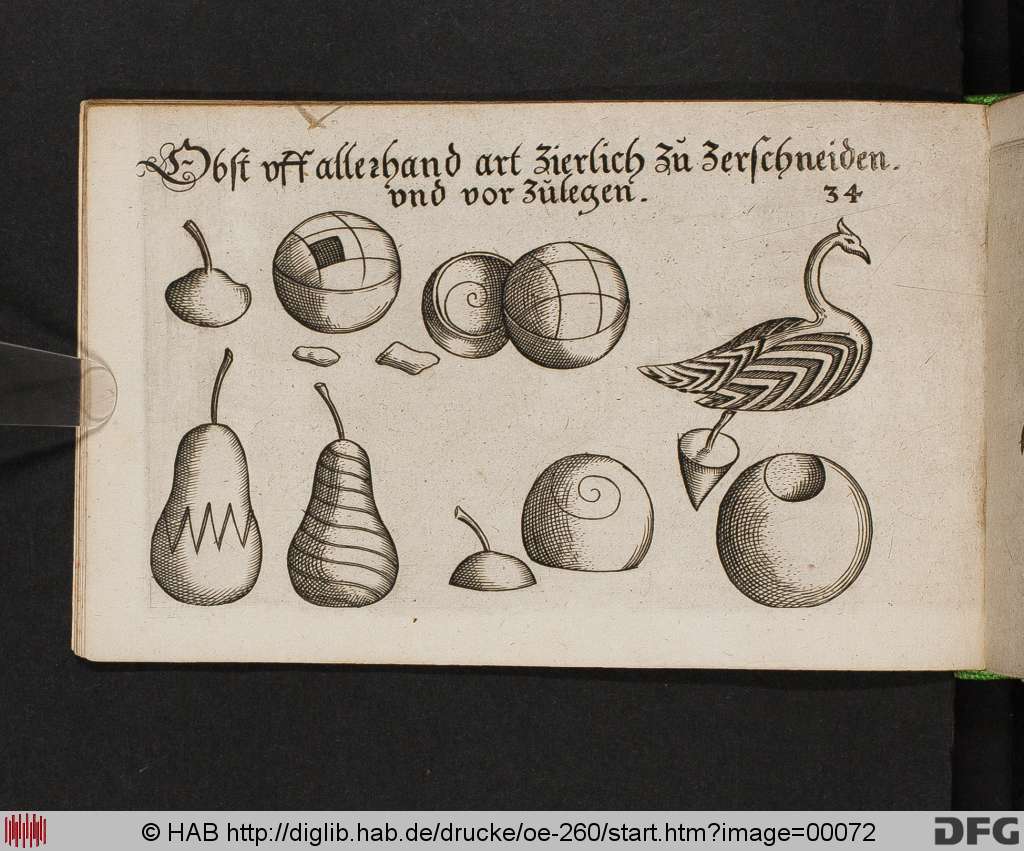 Obst vff allerhand art Zierlich Zů Zerschneiden.
vnd vor Zůlegen.
34
© HAB http://diglib.hab.de/drucke/oe-260/start.htm?image=00072
DFG